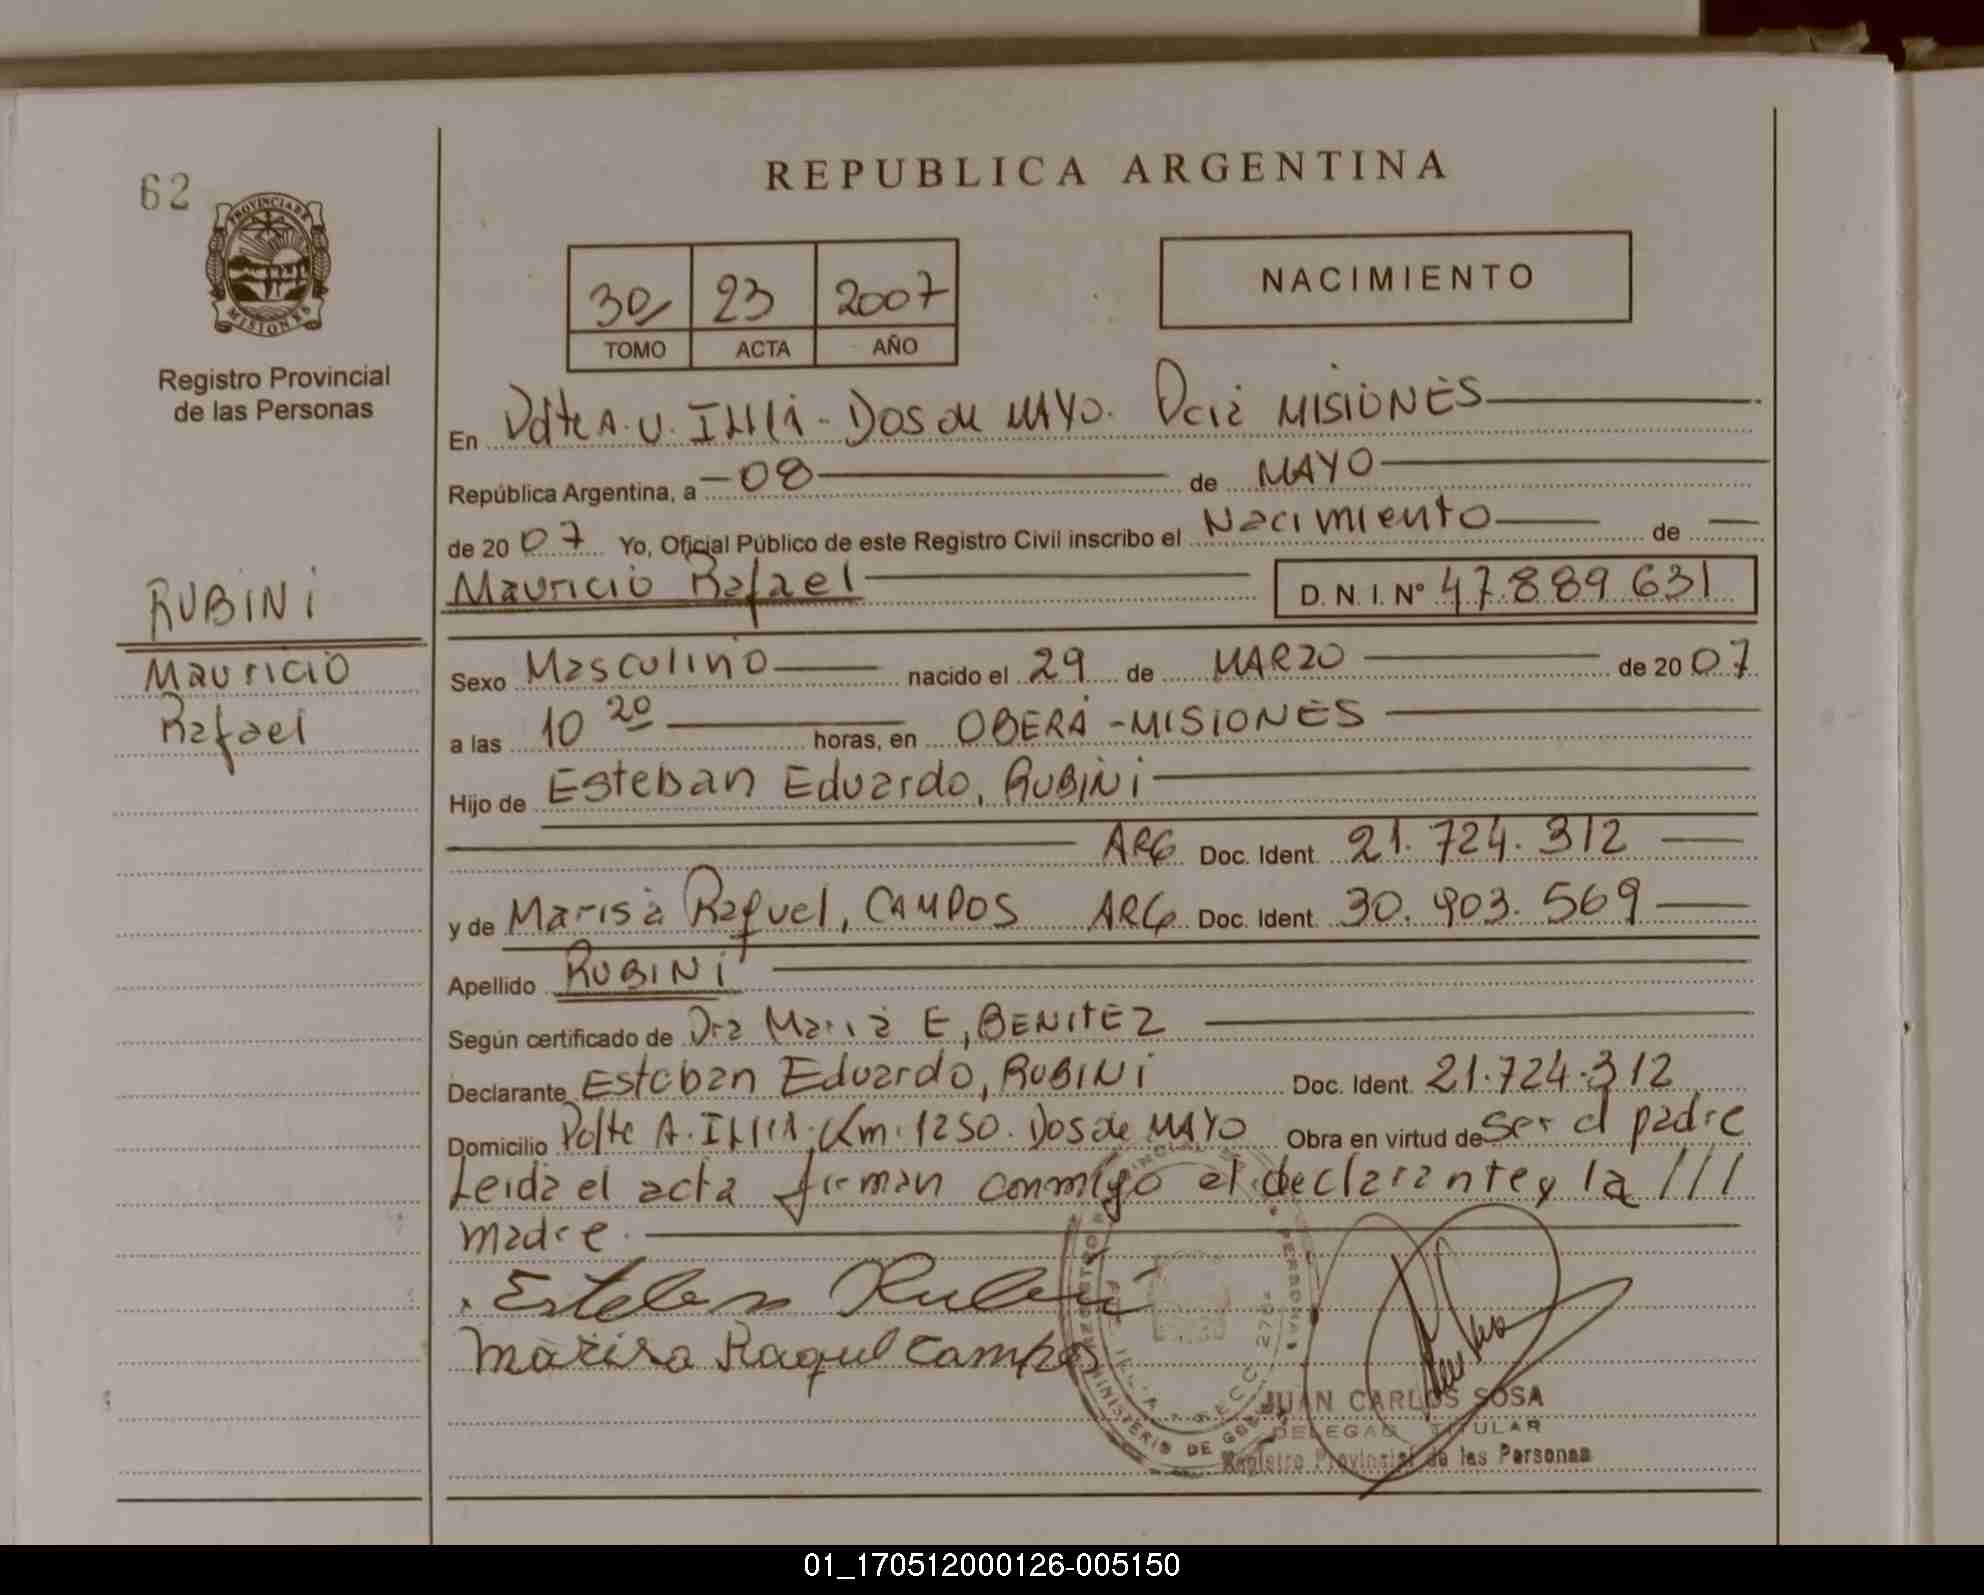 62
PROVINCIA DE
MISIONES
Registro Provincial
de las Personas
RUBINI
Mauricio
Rafael
REPUBLICA ARGENTINA
30 23 2007
TOMO ACTA AÑO
NACIMIENTO
En Pdte A. U. Illia - Dos de MAYO. Pcia MISIONES
República Argentina, a 08 de MAYO
de 2007 Yo, Oficial Público de este Registro Civil inscribo el Nacimiento de
Mauricio Rafael D.N.I. Nº 47.889.631
Sexo Masculino nacido el 29 de MARZO de 2007
a las 10 20 horas, en OBERÁ - MISIONES
Hijo de Esteban Eduardo, RUBINI
ARG Doc. Ident. 21.724.312
y de Marisa Raquel, CAMPOS ARG Doc. Ident. 30.903.569
Apellido RUBINI
Según certificado de Dra Maria E, BENITEZ
Declarante Esteban Eduardo, RUBINI Doc. Ident. 21.724.312
Domicilio Pdte A. Illia. Km. 1250. Dos de MAYO Obra en virtud de ser el padre
Leida el acta firman conmigo el declarante y la ///
madre.
Esteban Rubini
Marisa Raquel Campos
JUAN CARLOS SOSA
DELEGADO TITULAR
Registro Provincial de las Personas
01_170512000126-005150